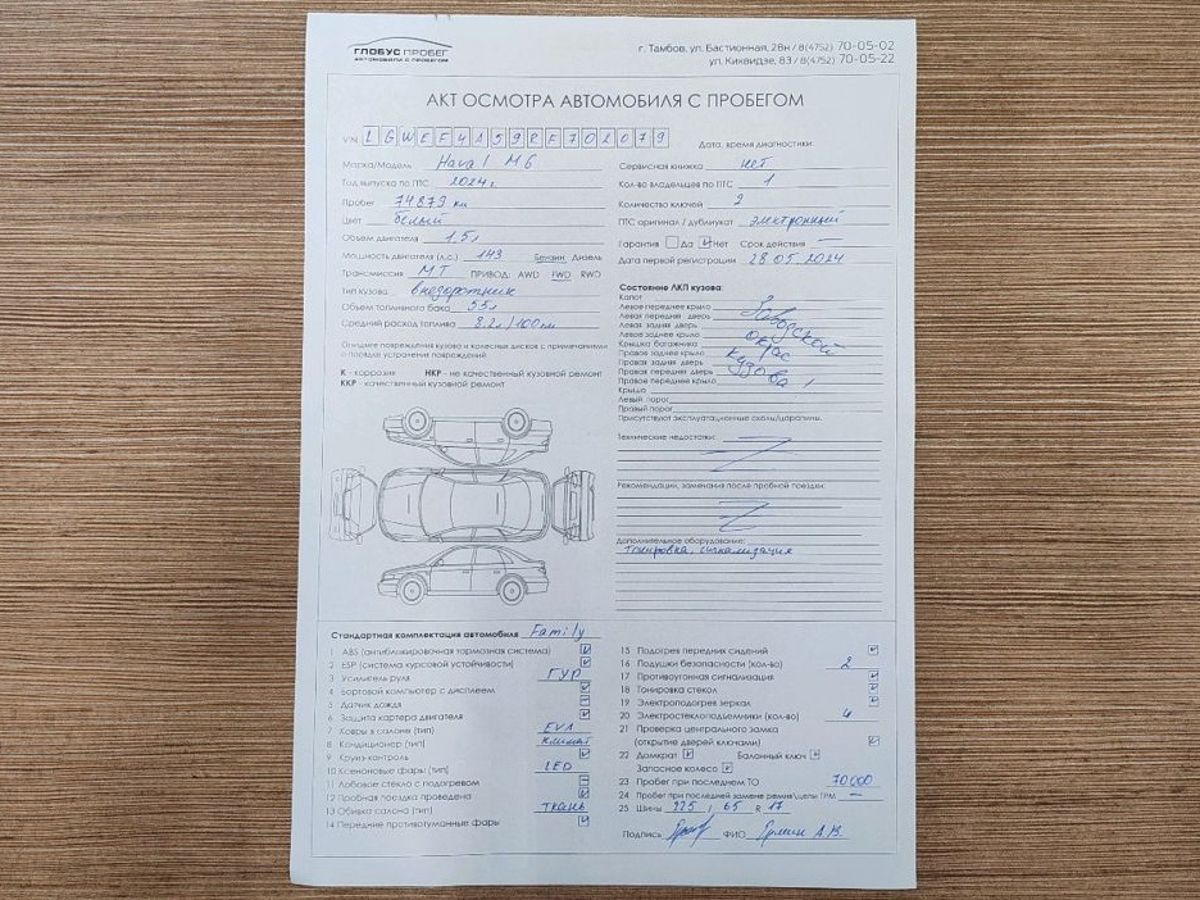 ГЛОБУС ПРОБЕГ
АВТОМОБИЛИ С ПРОБЕГОМ
г. Тамбов, ул. Бастионная, 28н / 8(4752) 70-05-02
ул. Киквидзе, 83 / 8(4752) 70-05-22
АКТ ОСМОТРА АВТОМОБИЛЯ С ПРОБЕГОМ
VIN LGWEF4A59RF702079
Дата, время диагностики:
Марка/Модель Haval M6
Год выпуска по ПТС 2024г.
Пробег 74879 км
Цвет белый
Объем двигателя 1,5л
Мощность двигателя (л.с.) 143 Бензин Дизель
Трансмиссия МТ ПРИВОД: AWD FWD RWD
Тип кузова внедорожник
Объем топливного бака 55л
Средний расход топлива 8.2л/100км
Опишите повреждения кузова и колесных дисков с примечаниями
о порядке устранения повреждений
К - коррозия НКР - не качественный кузовной ремонт
ККР - качественный кузовной ремонт
Сервисная книжка нет
Кол-во владельцев по ПТС 1
Количество ключей 2
ПТС оригинал / дубликат электронный
Гарантия Да Нет Срок действия —
Дата первой регистрации 28.05.2024
Состояние ЛКП кузова:
Капот
Левое переднее крыло
Левая передняя дверь
Левая задняя дверь
Левое заднее крыло
Крышка багажника
Правое заднее крыло
Правая задняя дверь
Правая передняя дверь
Правое переднее крыло
Крыша
Левый порог
Правый порог
Заводской
окрас
кузова!
Присутствуют эксплуатационные сколы/царапины.
Технические недостатки:
Рекомендации, замечания после пробной поездки:
Дополнительное оборудование:
тонировка, сигнализация
Стандартная комплектация автомобиля Family
1 ABS (антиблокировочная тормозная система)
2 ESP (система курсовой устойчивости)
3 Усилитель руля ГУР
4 Бортовой компьютер с дисплеем
5 Датчик дождя
6 Защита картера двигателя
7 Ковры в салоне (тип) EVA
8 Кондиционер (тип) климат
9 Круиз-контроль
10 Ксеноновые фары (тип) LED
11 Лобовое стекло с подогревом
12 Пробная поездка проведена
13 Обивка салона (тип) ткань
14 Передние противотуманные фары
15 Подогрев передних сидений
16 Подушки безопасности (кол-во) 2
17 Противоугонная сигнализация
18 Тонировка стекол
19 Электроподогрев зеркал
20 Электростеклоподъемники (кол-во) 4
21 Проверка центрального замка
(открытие дверей ключами)
22 Домкрат Балонный ключ
Запасное колесо
23 Пробег при последнем ТО 70000
24 Пробег при последней замене ремня\цепи ГРМ —
25 Шины 225 / 65 R 17
Подпись ФИО